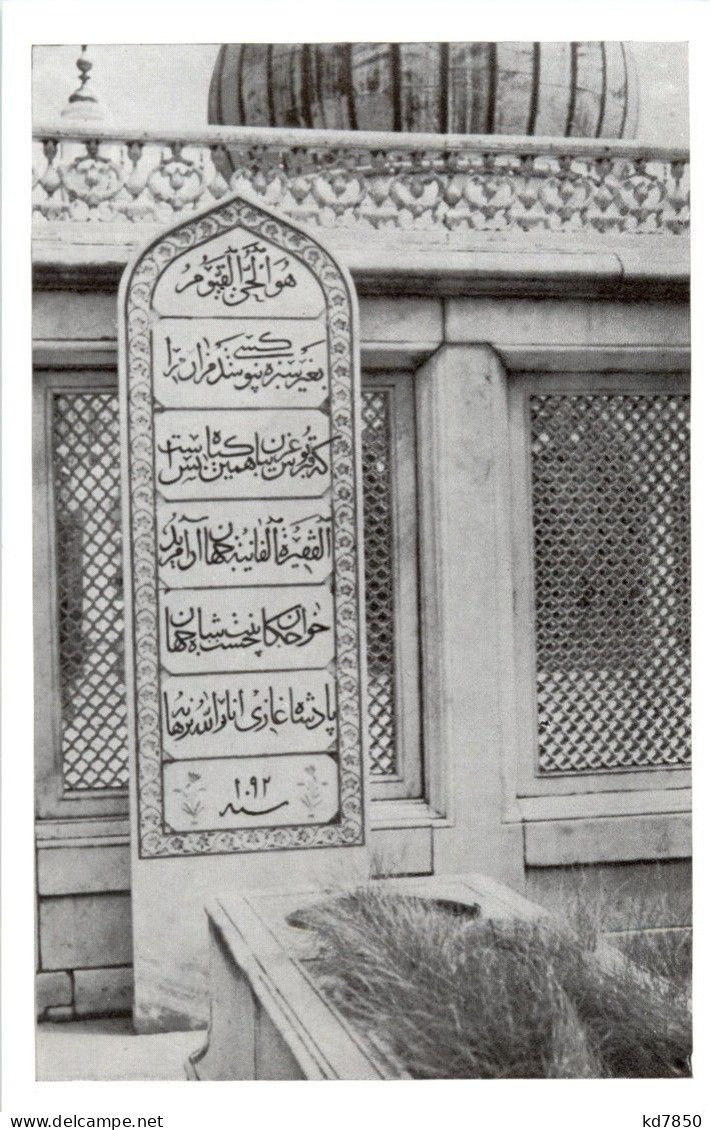 هو الحی القیوم
بغیر سبزه نپوشد کسی مزار مرا
که قبرپوش غریبان همین گیاه بس است
الفقیرة الفانیة جهان آرا مرید
خواجگان چشت بنت شاه جهان
پادشاه غازی انار الله برهانه
سنه ۱۰۹۲
kd7850